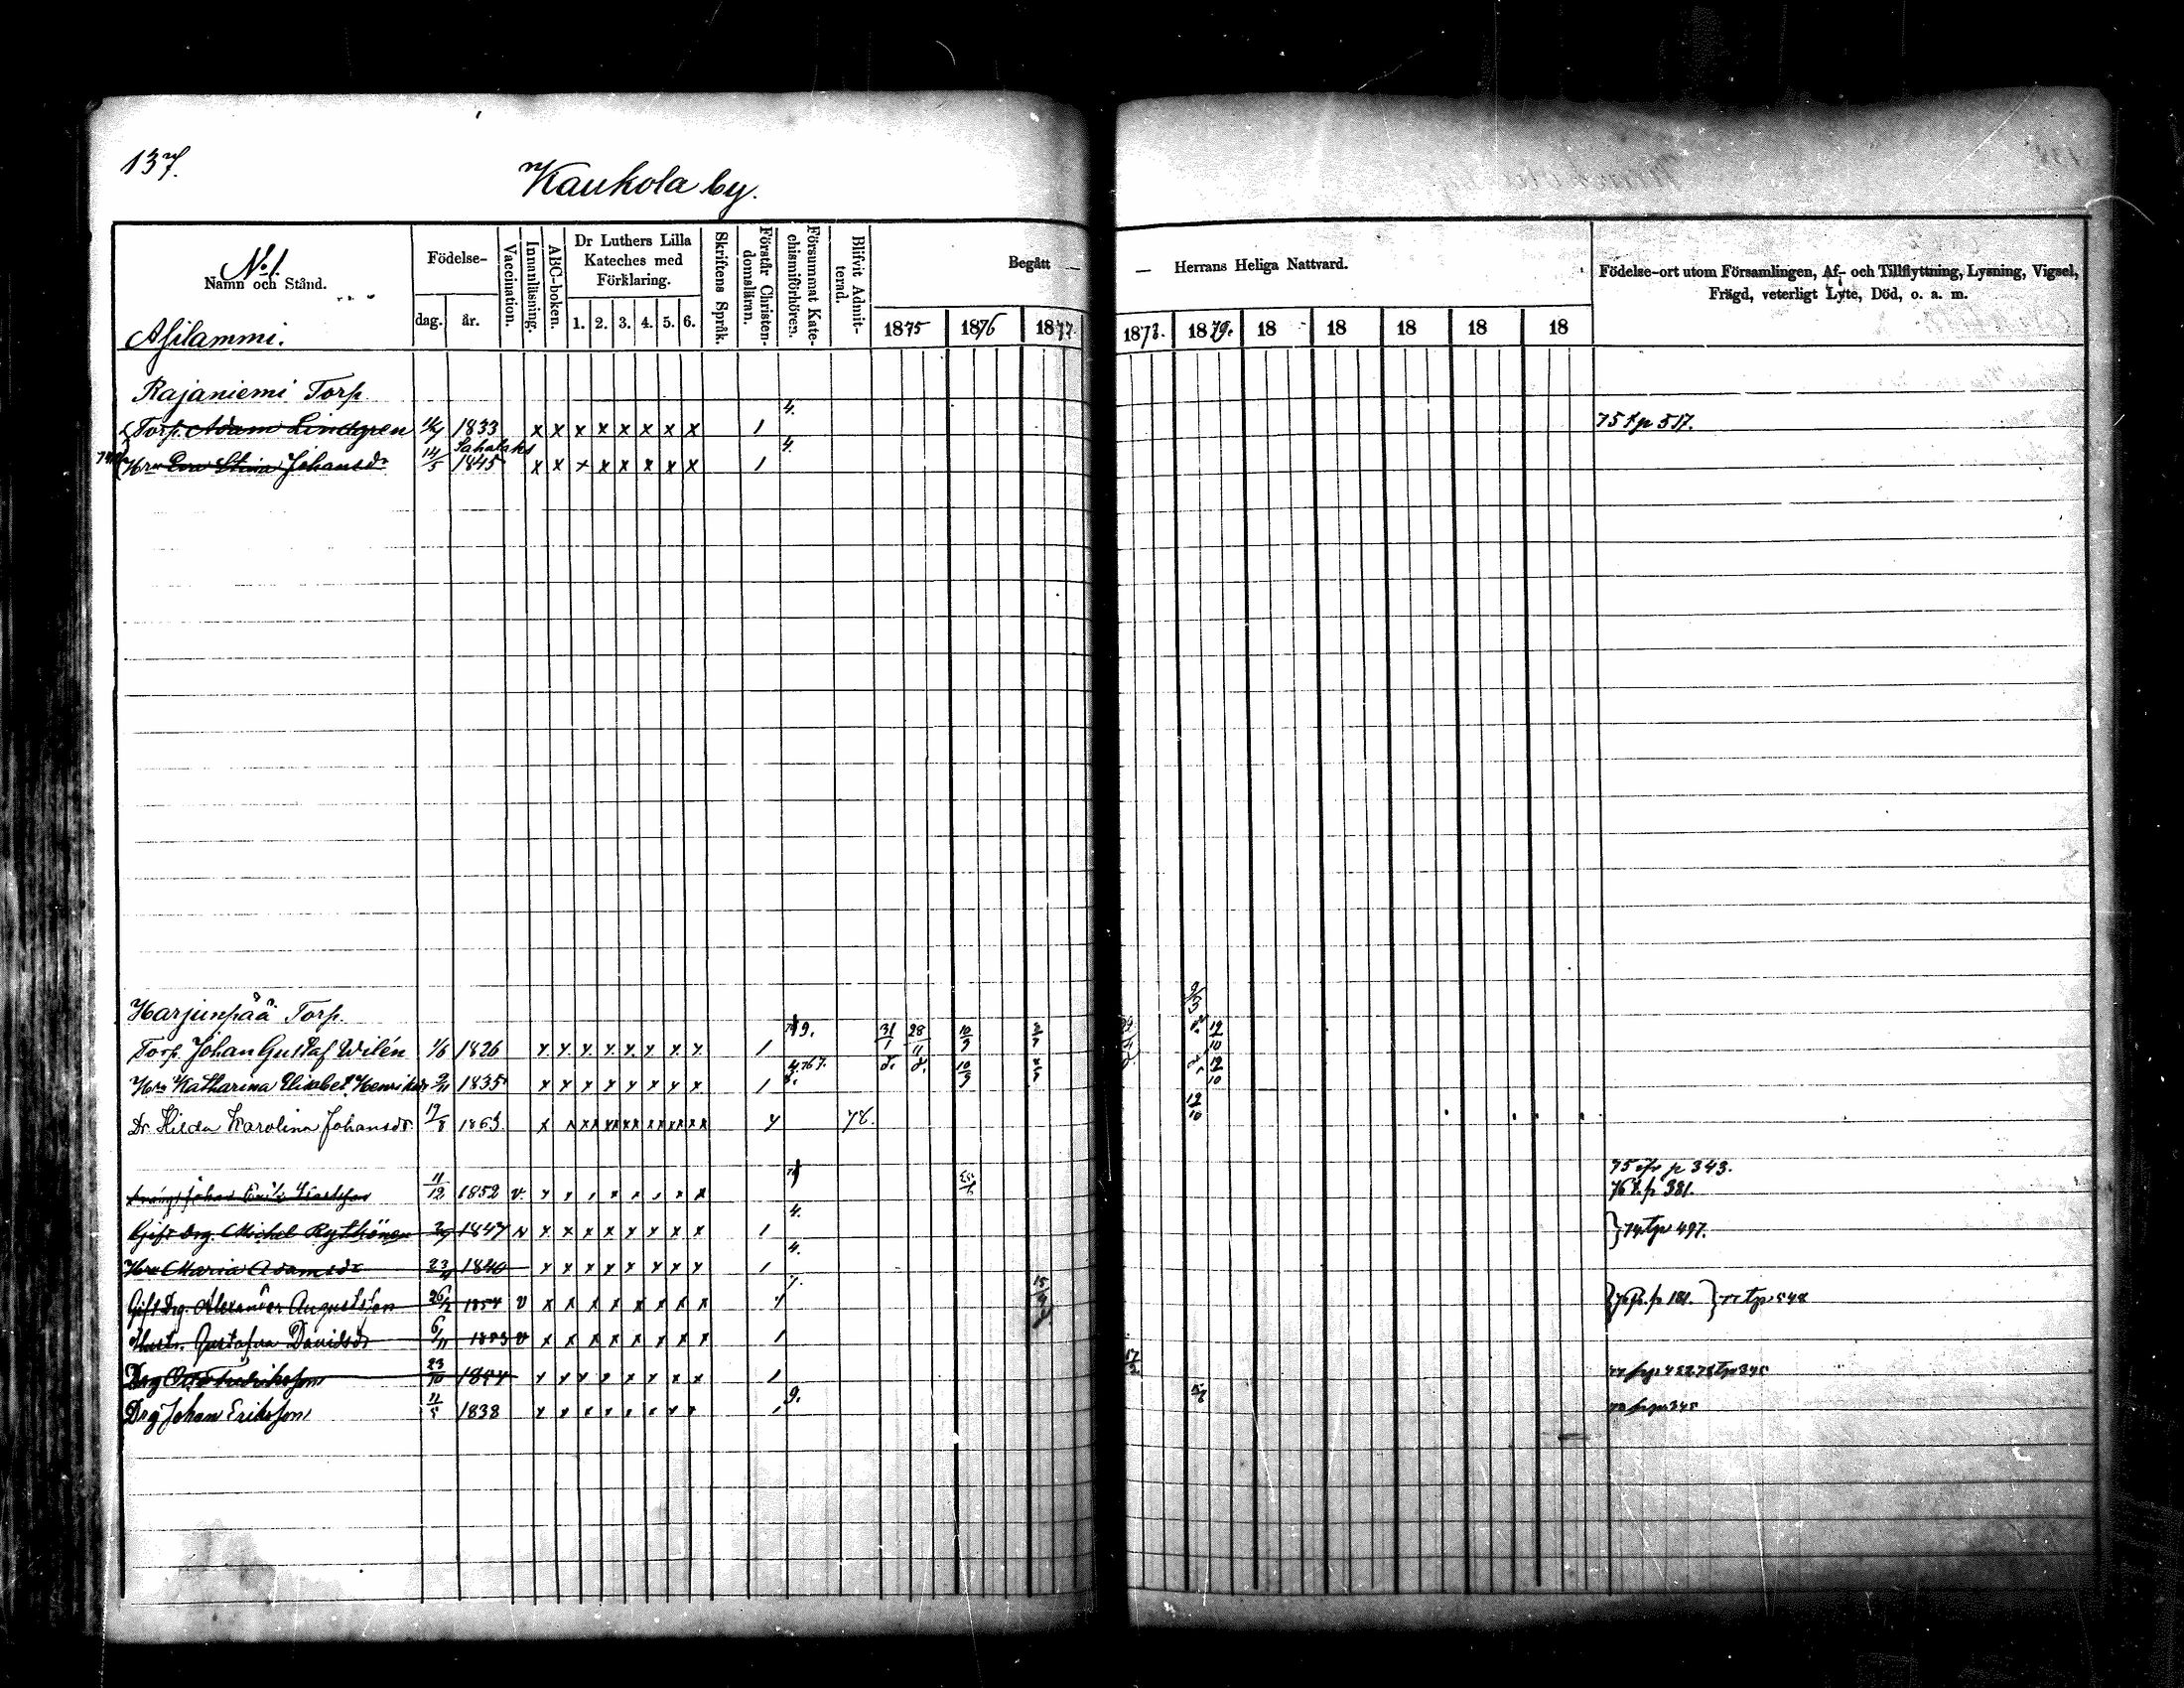 137.
Kaukola by.
No 1.
Namn och Stånd.
Födelse-
dag.
år.
Vaccination.
Innanläsning.
ABC-boken.
Dr Luthers Lilla
Kateches med
Förklaring.
1. 2. 3. 4. 5. 6.
Skriftens Språk.
Förstår Christen-
domsläran.
Försummat Kate-
chismiförhören.
Blifvit Admit-
terad.
Begått —
1875 1876 1877
— Herrans Heliga Nattvard.
1878. 1879. 18 18 18 18 18
Födelse-ort utom Församlingen, Af- och Tillflyttning, Lysning, Vigsel,
Frägd, veterligt Lyte, Död, o. a. m.
Asilammi.
Rajaniemi Torp.
Torp. Adam Lindgren 1833 x x x x x x x x 1 4. 75 tp 517.
Sahalaks
Hru Eva Stina Johansdr 14/5 1845 x x x x x x x x 1 4.
Harjunpää Torp. 9/3
Torp. Johan Gustaf Wilén 1/6 1826 x x x x x x x x 1 9. 31/1 28/11 10/9 12/10
Hru Katharina Elisabet Henriksdr 9/11 1835 x x x x x x x x 1 d. d. 10/9 12/10
Dr. Hilda Karolina Johansdr 19/8 1863 x 78. 12/10
Johan Erik 11/12 1852 v. 75 ifr p 343.
76 t. p 381.
Gift drg. Michel Rythönen 1847 v x x x x x x x x 1 4. 74 tp 497.
Hru Maria Adamsdr 23/4 1840 x x x x x x x x 1 4.
Gift Drg. Alexander Augustsson 26/2 1854 v x x x x x x x x 15/4 p 181. 77 tp 548
Hustr. Gustafva Davidsdr 6/11 1853 v x x x x x x x x 1
Drg Otto Fredriksson 23/10 1854 x x x x x x x x 1 17/2
Drg Johan Eriksson 11/5 1838 9.